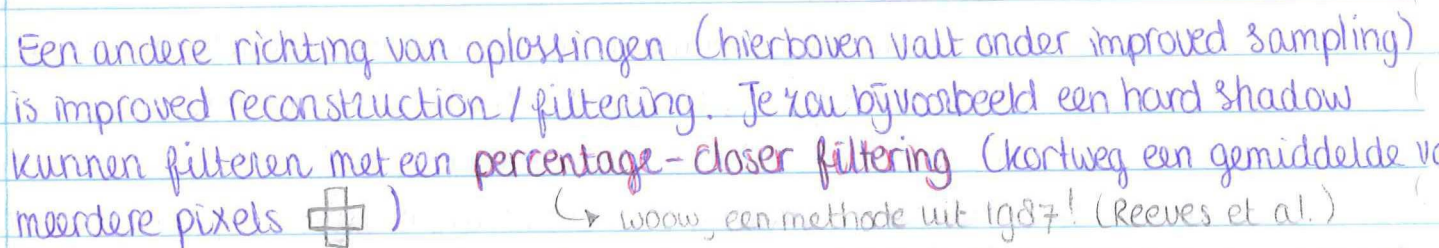 Een andere richting van oplossingen (hierboven valt onder improved sampling)
is improved reconstruction / filtering. Je zou bijvoorbeeld een hard shadow
kunnen filteren met een percentage-closer filtering (kortweg een gemiddelde
meerdere pixels )
↳ woow, een methode uit 1987! (Reeves et al.)